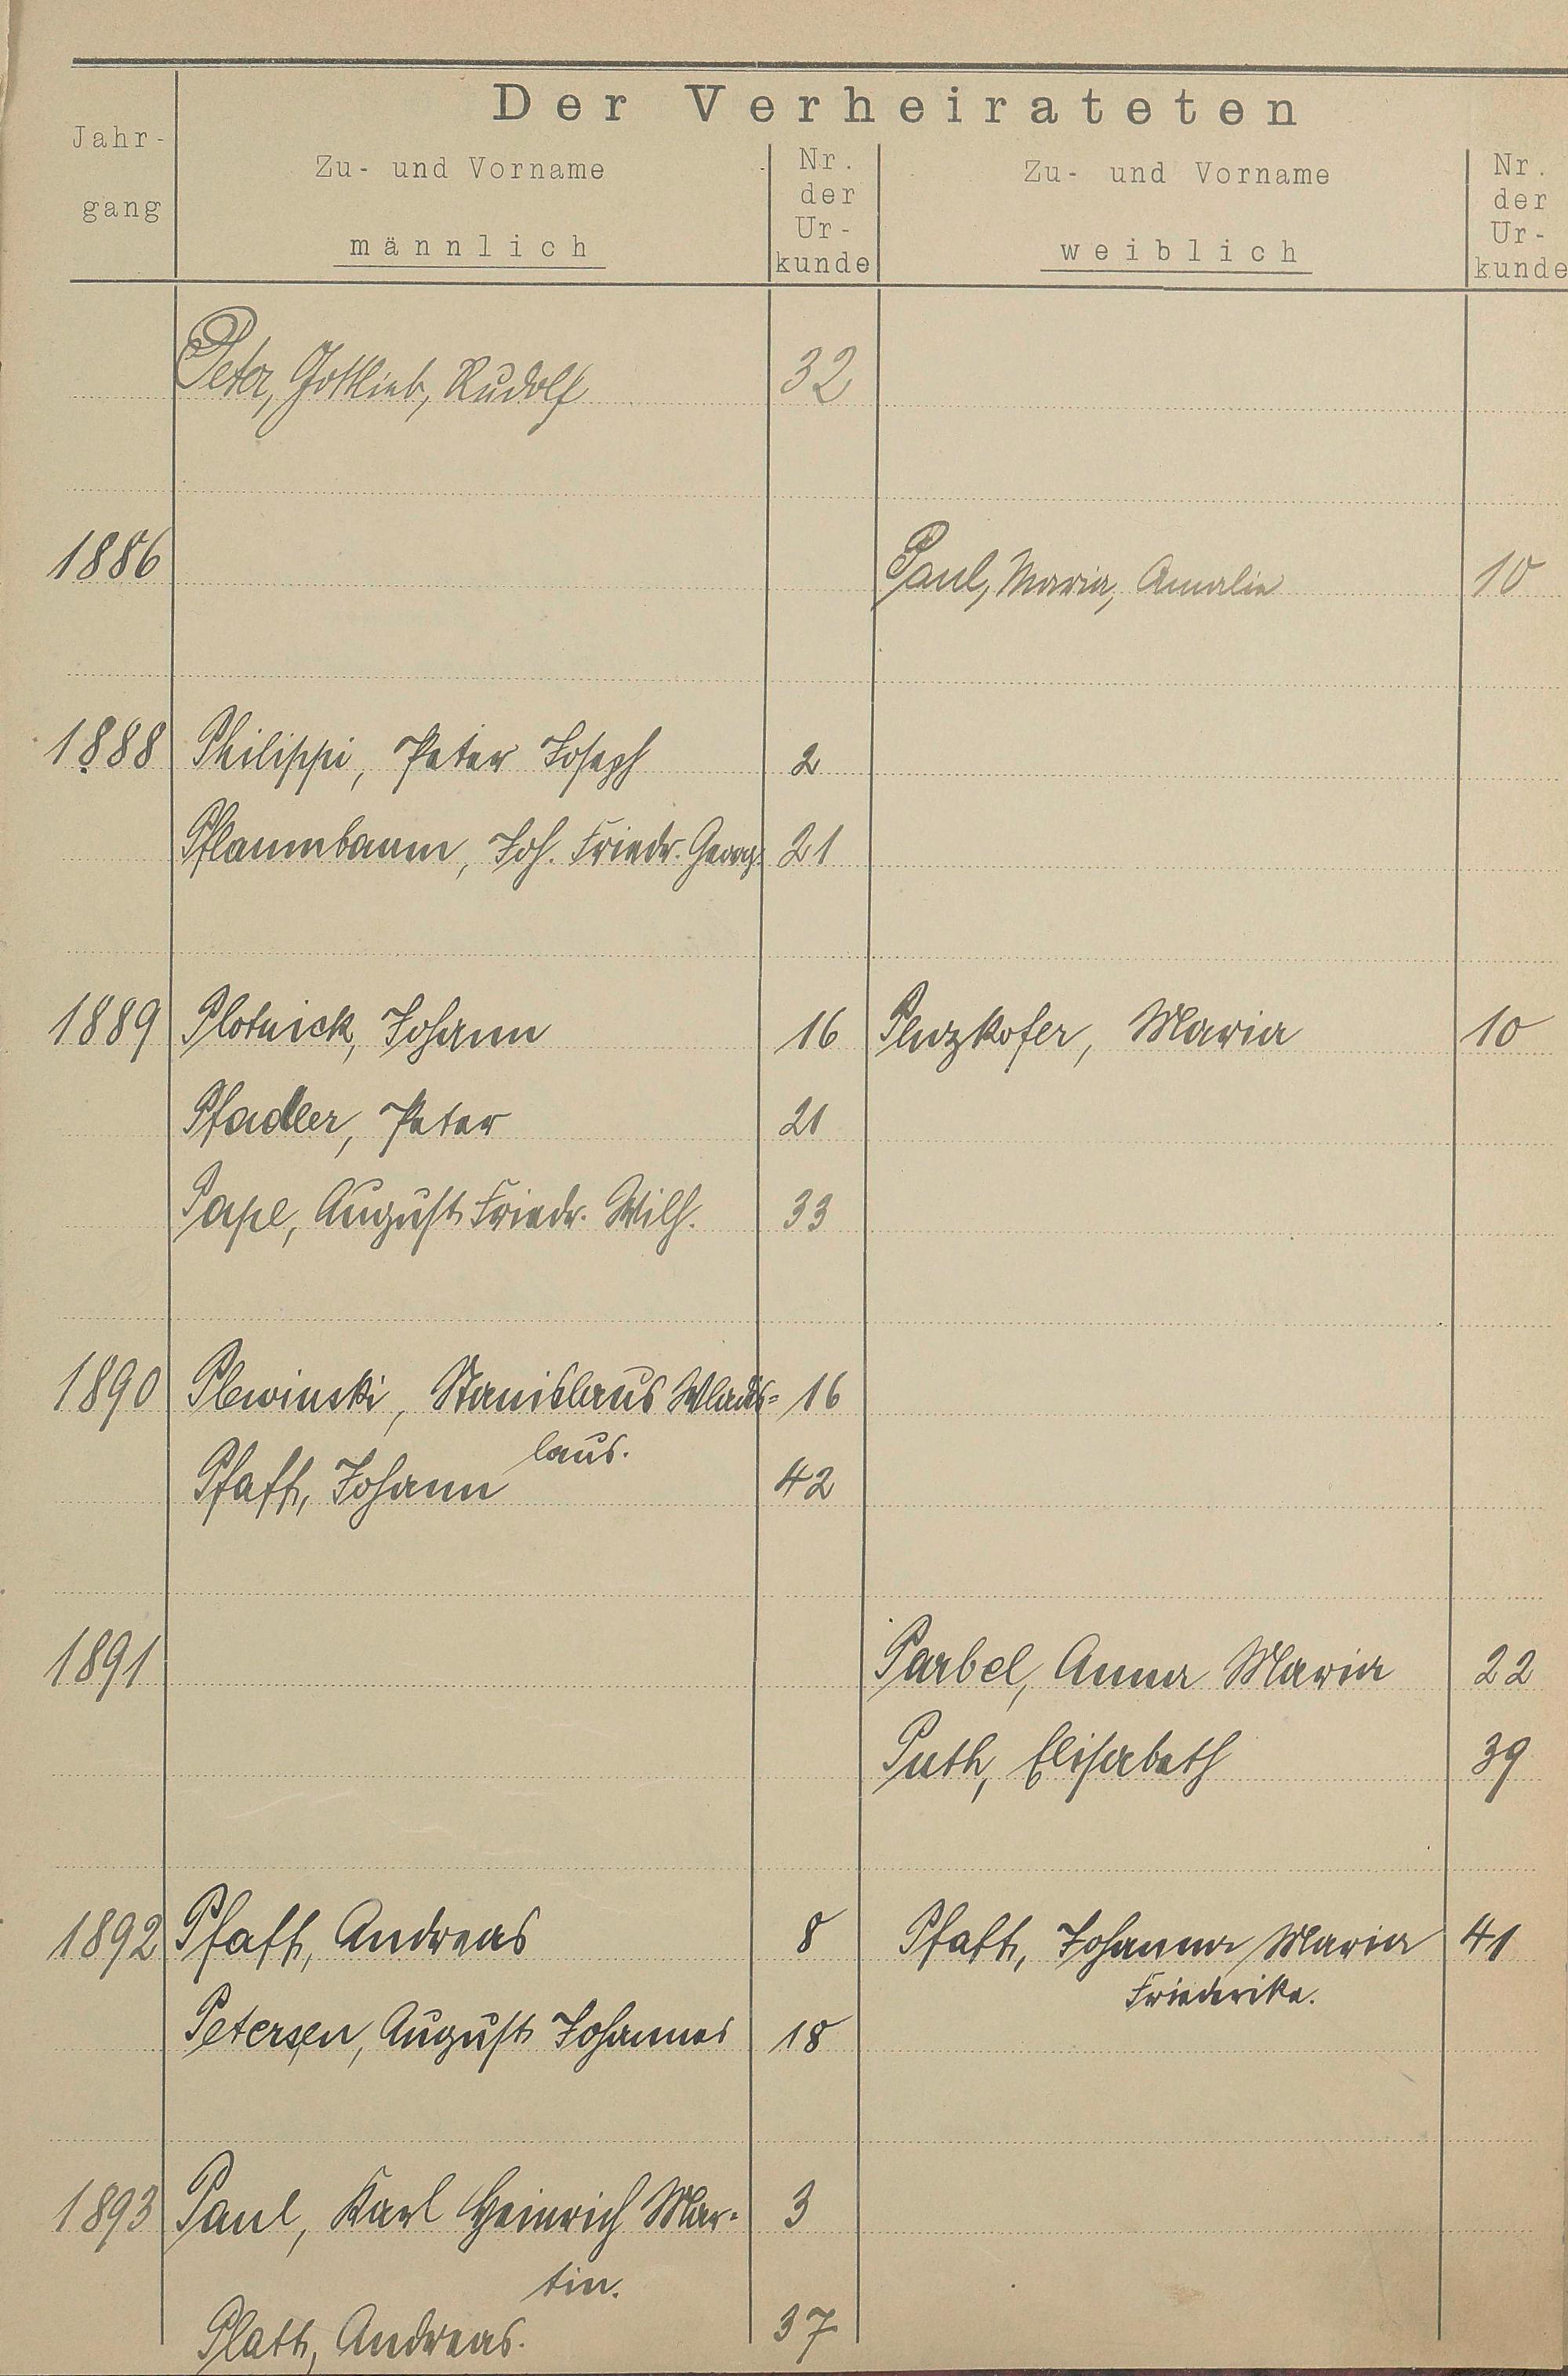 Der Verheirateten
Jahr-
gang
Zu- und Vorname
männlich
Nr.
der
Ur-
kunde
Zu- und Vorname
weiblich
Nr.
der
Ur-
kunde
Peter, Gottlieb, Rudolf 32
1886 Paul, Maria, Amalie 10
1888 Philippi, Peter Joseph 2
Pflaumbaum, Joh. Friedr. Georg. 21
1889 Plotnick, Johann 16 Maria 10
Pfadler, Peter 21
Pape, August Friedr. Wilh. 33
1890 Plewinski, Stanislaus Wladis= 16
laus.
Pfaff, Johann 42
1891 Parbel, Anna Maria 22
Puth, Elisabeth 39
1892 Pfaff, Andreas 8 Pfaff, Johanna Maria 41
Friederike.
Petersen, August Johannes 18
1893 Paul, Karl Heinrich Mar- 3
tin.
Platt, Andreas. 37